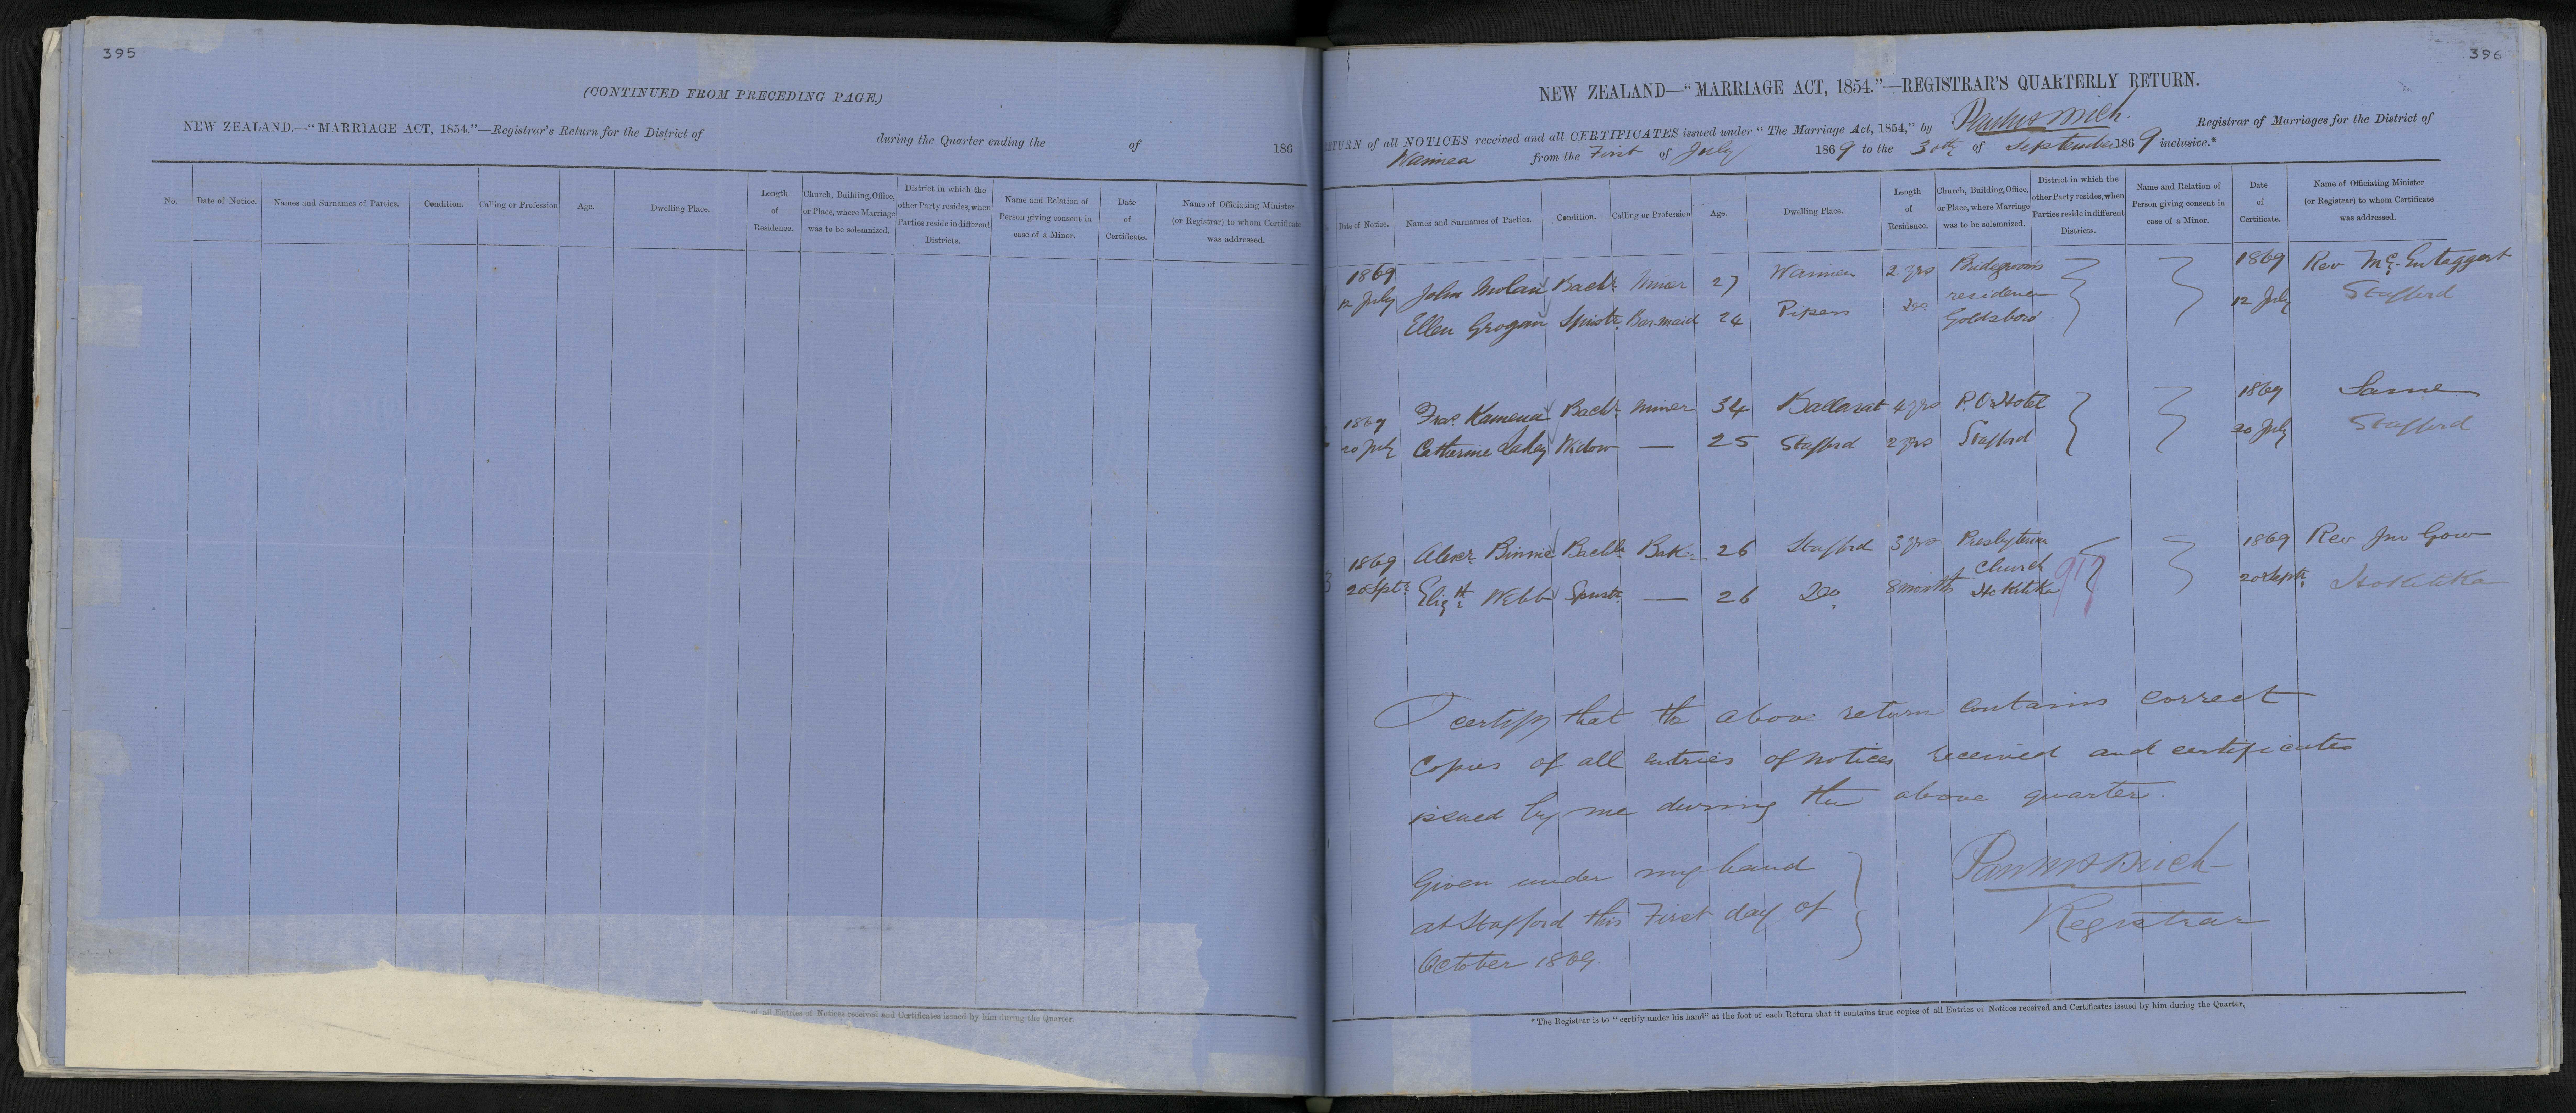 395
(CONTINUED FROM PRECEDING PAGE.)
NEW ZEALAND.—“MARRIAGE ACT, 1854.”—Registrar's Return for the District of during the Quarter ending the of 186
No. Date of Notice. Names and Surnames of Parties. Condition. Calling or Profession Age. Dwelling Place. Length of Residence. Church, Building, Office, or Place, where Marriage was to be solemnized. District in which the other Party resides, when Parties reside in different Districts. Name and Relation of Person giving consent in case of a Minor. Date of Certificate. Name of Officiating Minister (or Registrar) to whom Certificate was addressed.
of all Entries of Notices received and Certificates issued by him during the Quarter
396
NEW ZEALAND—“MARRIAGE ACT, 1854.”—REGISTRAR'S QUARTERLY RETURN.
RETURN of all NOTICES received and all CERTIFICATES issued under “The Marriage Act, 1854,” by Registrar of Marriages for the District of
Waimea from the First of July 1869 to the 30th of September 1869 inclusive.*
Date of Notice. Names and Surnames of Parties. Condition. Calling or Profession Age. Dwelling Place. Length of Residence. Church, Building, Office, or Place, where Marriage was to be solemnized. District in which the other Party resides, when Parties reside in different Districts. Name and Relation of Person giving consent in case of a Minor. Date of Certificate. Name of Officiating Minister (or Registrar) to whom Certificate was addressed.
1869 John Nolan Bachr Miner 27 Waimea 2 yrs Bridegrooms 1869 Rev McEntaggert
12 July Ellen Grogan Spinstr Barmaid 24 Pipers Do residence Goldsboro 12 July Stafford
1869 Fras Kamena Bachr Miner 34 Ballarat 4 yrs P.O. Hotel 1869 Same
20 July Catherine Lahey Widow — 25 Stafford 2 yrs Stafford 20 July Stafford
3 1869 Alexr Binnie Bachlr Bakr 26 Stafford 3 yrs Presbyterian 1869 Rev Jno Gow
20 Sptr Elizth Webb Spinstr — 26 Do 8 months Church Hokitika 20 Septr Hokitika
I certify that the above return contains correct
copies of all entries of notices received and certificates
issued by me during the above quarter.
Given under my hand
at Stafford this First day of
October 1869.
Registrar
*The Registrar is to “certify under his hand” at the foot of each Return that it contains true copies of all Entries of Notices received and Certificates issued by him during the Quarter.